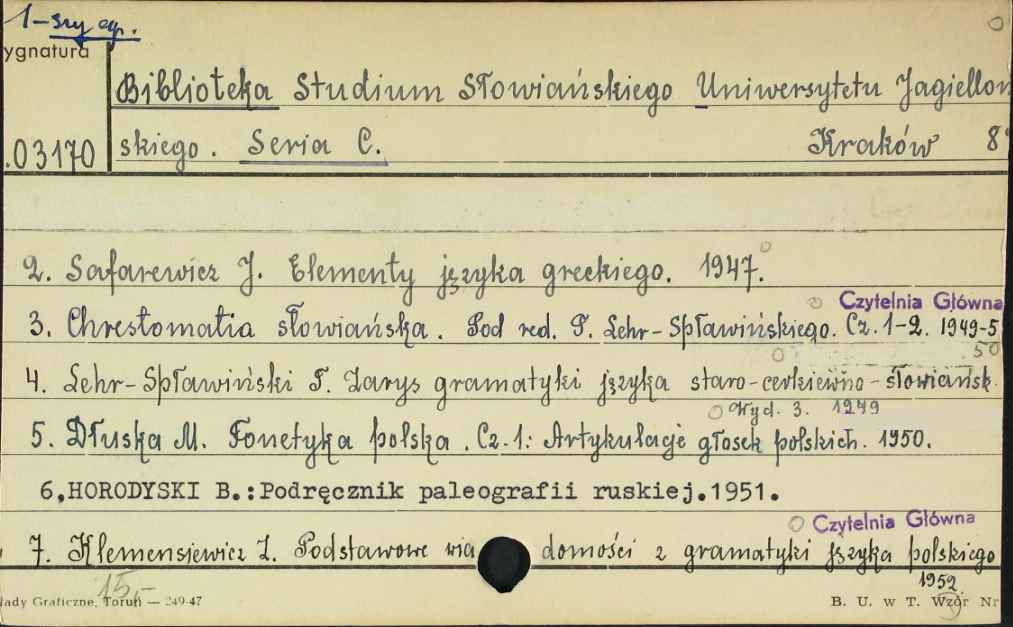 1-szy eg.
ygnatura
Biblioteka Studium Słowiańskiego Uniwersytetu Jagiellon
.03170 skiego. Seria C. Kraków 8°
2. Safarewicz J. Elementy języka greckiego. 1947.
Czytelnia Główna
3. Chrestomatia słowiańska. Pod red. T. Lehr-Spławińskiego. Cz. 1-2. 1949-5
50
4. Lehr-Spławiński T. Zarys gramatyki języka staro-cerkiewno-słowiańsk.
Wyd. 3. 1949
5. Dłuska M. Fonetyka polska. Cz. 1: Artykulacje głosek polskich. 1950.
6,HORODYSKI B.:Podręcznik paleografii ruskiej.1951.
Czytelnia Główna
7. Klemensiewicz Z. Podstawowe wia domości z gramatyki języka polskiego
1952
15,-
łady Graficzne, Toruń — 249-47 B. U. w T. Wzór Nr